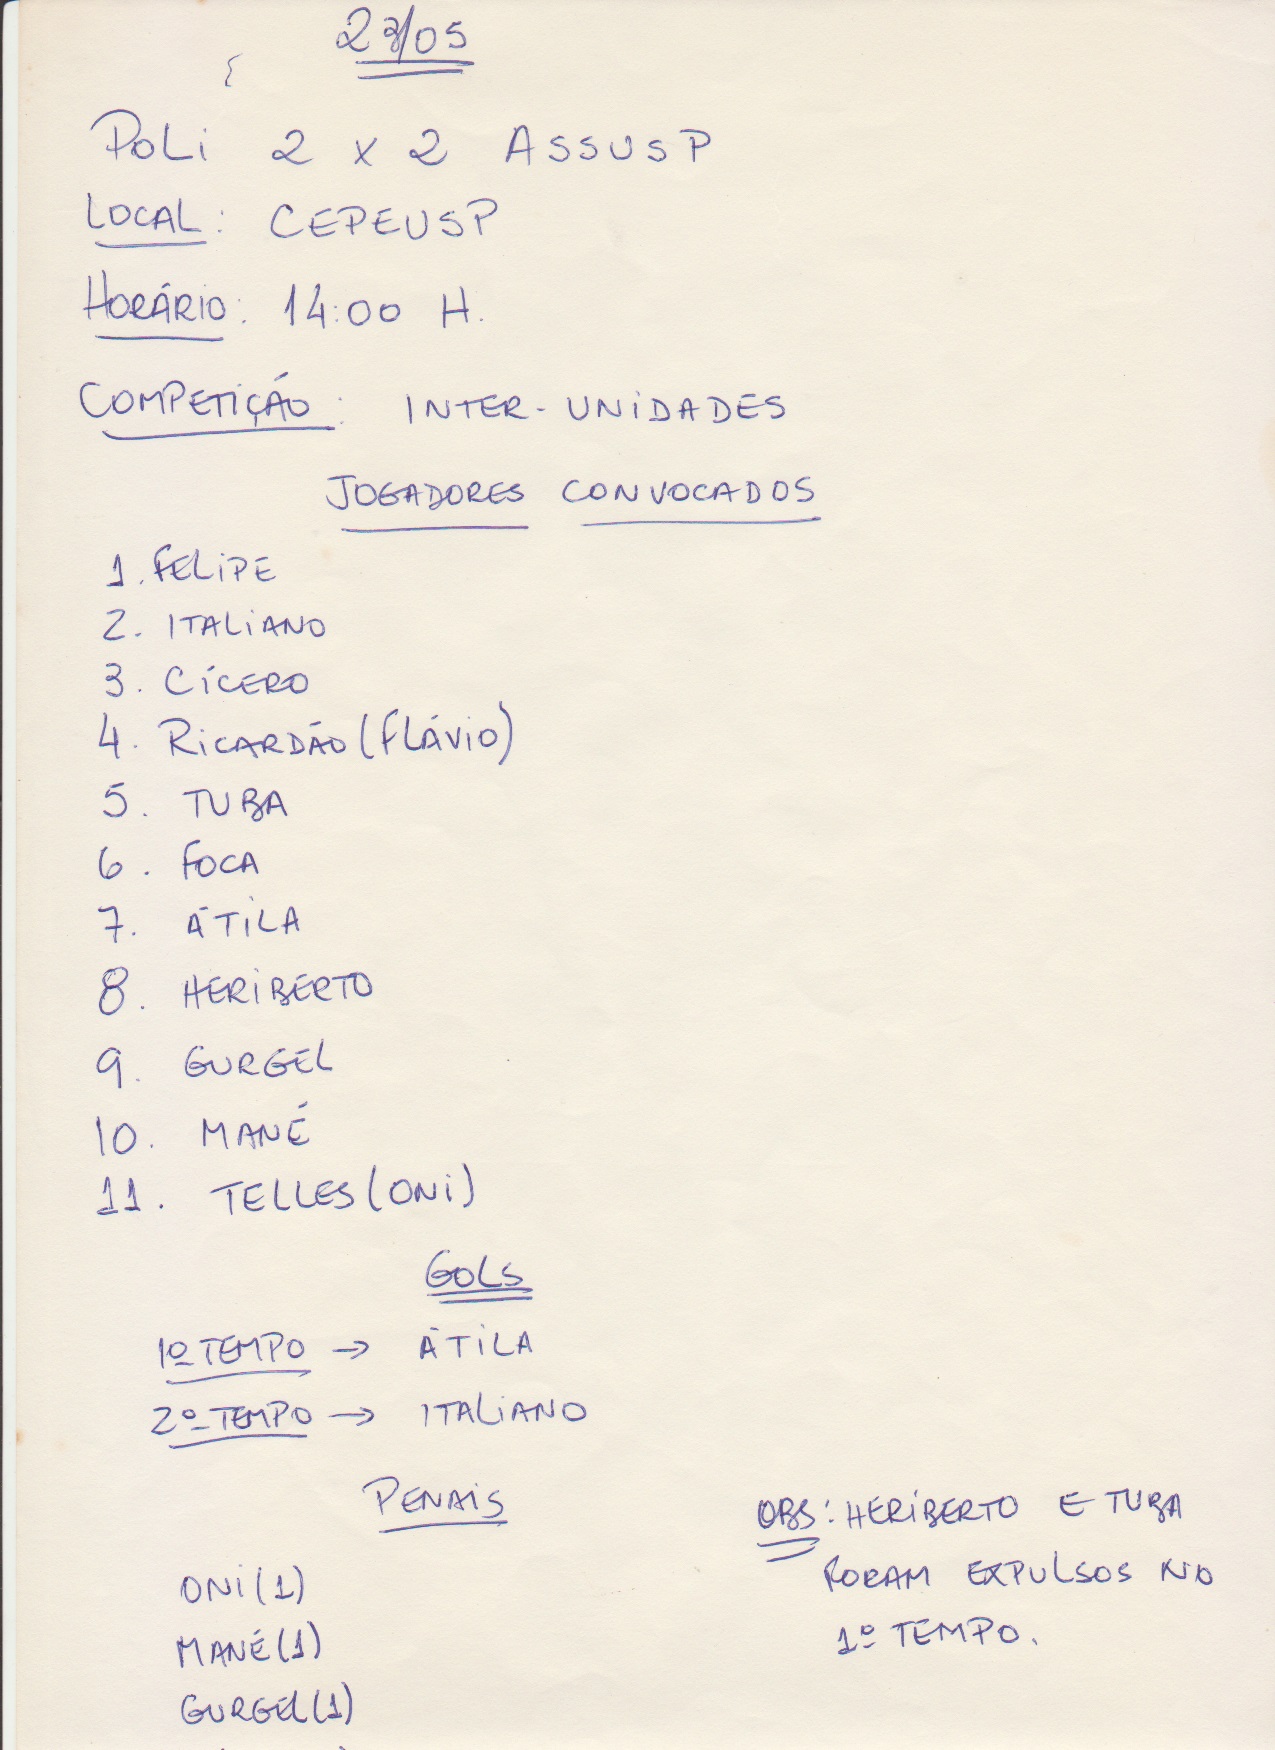 27/05
POLI 2 X 2 ASSUSP
LOCAL: CEPEUSP
HORÁRIO: 14:00 H.
COMPETIÇÃO: INTER-UNIDADES
JOGADORES CONVOCADOS
1. FELIPE
2. ITALIANO
3. CÍCERO
4. RICARDÃO (FLÁVIO)
5. TUBA
6. FOCA
7. ÁTILA
8. HERIBERTO
9. GURGEL
10. MANÉ
11. TELLES (ONI)
GOLS
1º TEMPO → ÁTILA
2º TEMPO → ITALIANO
PENAIS
ONI (1)
MANÉ (1)
GURGEL (1)
OBS: HERIBERTO E TUBA
FORAM EXPULSOS NO
1º TEMPO.